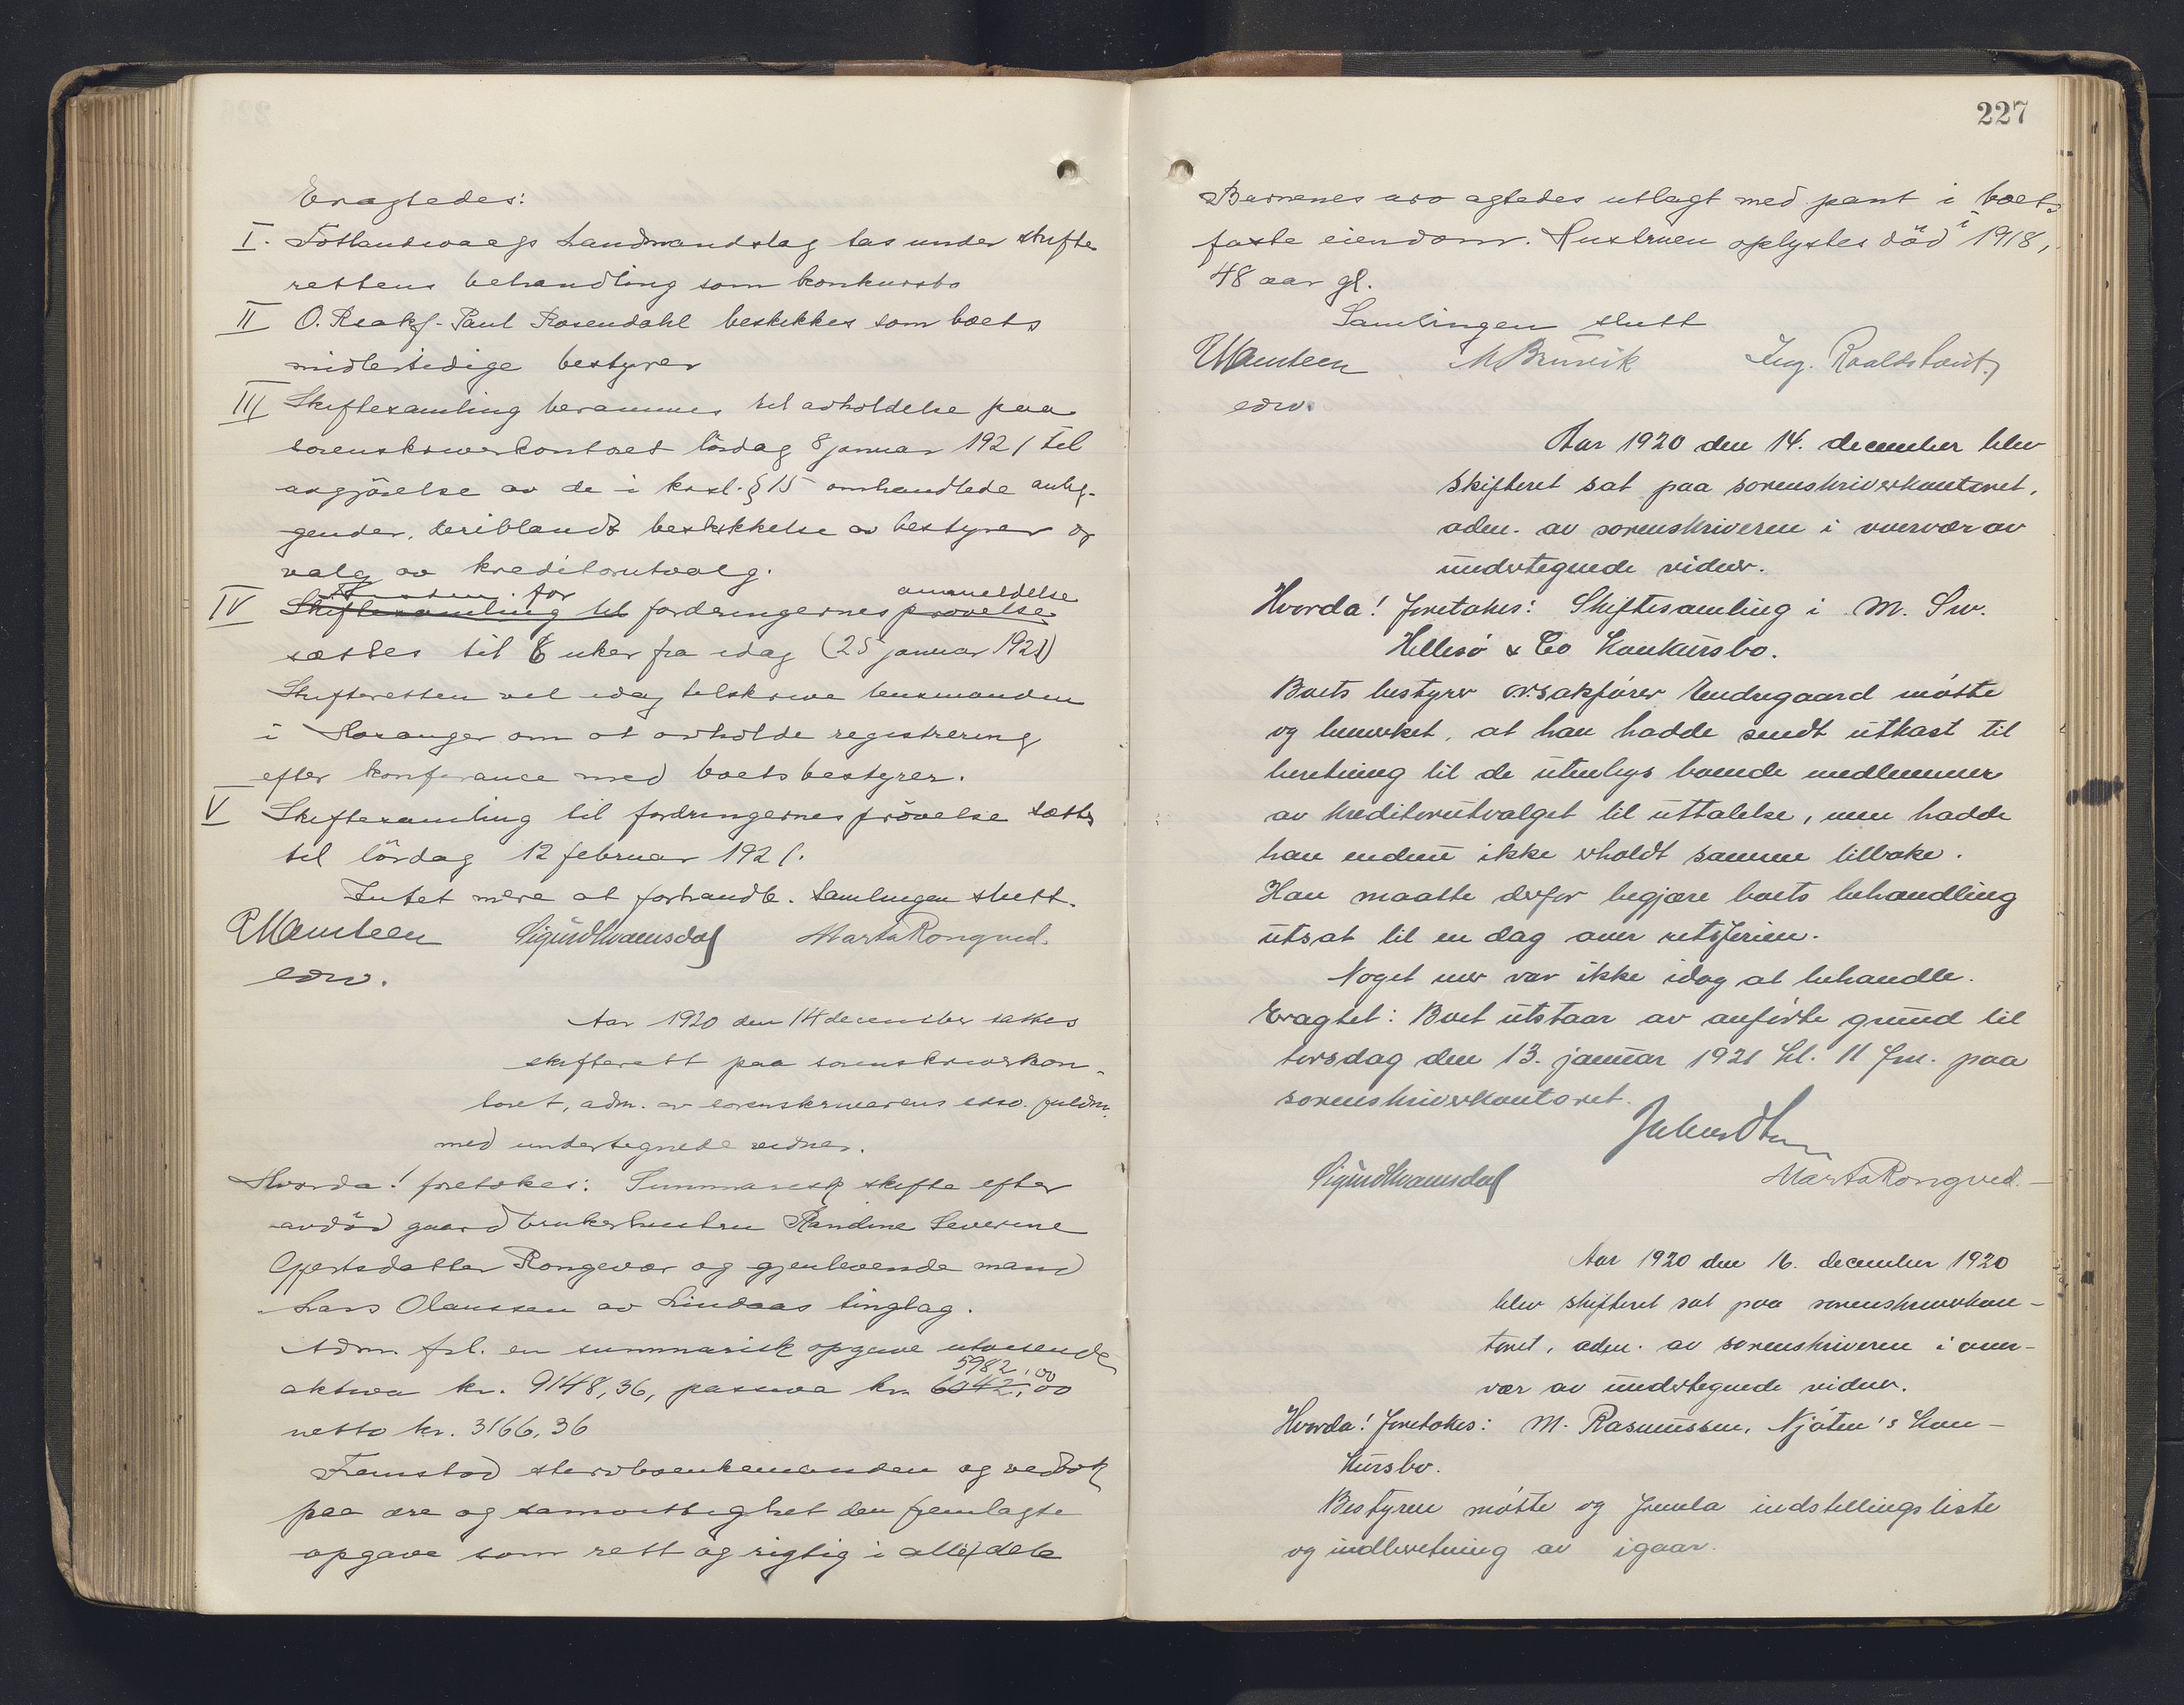 Eragtedes:
I. Fotlandsvaags Landmandslag tas under skifte
rettens behandling som konkursbo
II O. Rsakf. Paul Rosendahl beskikkes som boets
midlertidige bestyrer
III Skiftesamling berammes til avholdelse paa
sorenskriverkontoret lördag 8 januar 1921 til
avgjörelse av de i kosl. § 15 omhandlede anlig-
gender, deriblandt beskikkelse av bestyrer og
valg av kreditorutvalg.
for anmeldelse
IV Skiftesamling til fordringernes prövelse
sættes til 6 uker fra idag (25 januar 1921)
Skifteretten vil idag tilskrive lensmanden
i Hosanger om at avholde registrering
efter konferance med boets bestyrer.
V Skiftesamling til fordringernes prövelse sættes
til lördag 12 februar 1921.
Intet mere at forhandle. Samlingen slutt.
Sigurd Kvamsdal Marta Rongved.
edsv.
Aar 1920 den 14 december sattes
skifterett paa sorenskriverkon-
toret, adm. av sorenskriverens edsv. fuldm.
med undertegnede vidner.
Hvorda! foretokes: Summarisk skifte efter
avdöd gaardbrukerhustru Randine Severine
Gjertsdatter Rongevær og gjenlevende mand
Lars Olaussen av Lindaas tinglag.
Adm. frl. en summarisk opgave utvisende
5982,00
aktiva kr. 9148,36, passiva kr. 6342,00
netto kr. 3166,36
Fremstod stervboenkemanden og vedtok
paa ære og samvittighet den fremlagte
opgave som rett og rigtig i alle dele
227
Barnenes arv agtedes utlagt med pant i boets
faste eiendom. Hustruen oplystes död i 1918,
48 aar gl.
Samlingen slutt
M Brunvik Ing.
edsv.
Aar 1920 den 14. december blev
skifteret sat paa sorenskriverkontoret,
adm. av sorenskriveren i overvær av
undertegnede vidner.
Hvorda! foretokes: Skiftesamling i M. Sw.
Hellesö & Co Konkursbo.
Boets bestyrer o.r.sakförer Endregaard mötte
og bemerket, at han hadde sendt utkast til
beretning til de utenbys boende medlemmer
av kreditorutvalget til uttalelse, men hadde
han endnu ikke erholdt samme tilbake.
Han maatte derfor begjære boets behandling
utsat til en dag over retsferien.
Noget mer var ikke idag at behandle.
Eragtet: Boet utstaar av anförte grund til
torsdag den 13. januar 1921 kl. 11 fm. paa
sorenskriverkontoret.
Sigurd Kvamsdal Marta Rongved.
Aar 1920 den 16. december 1920
blev skifteret sat paa sorenskriverkon-
toret, adm. av sorenskriveren i over-
vær av undertegnede vidner.
Hvorda! foretokes: M. Rasmussen, Njøten's Kon-
kursbo.
Bestyren mötte og fremla indstillingsliste
og indberetning av igaar.